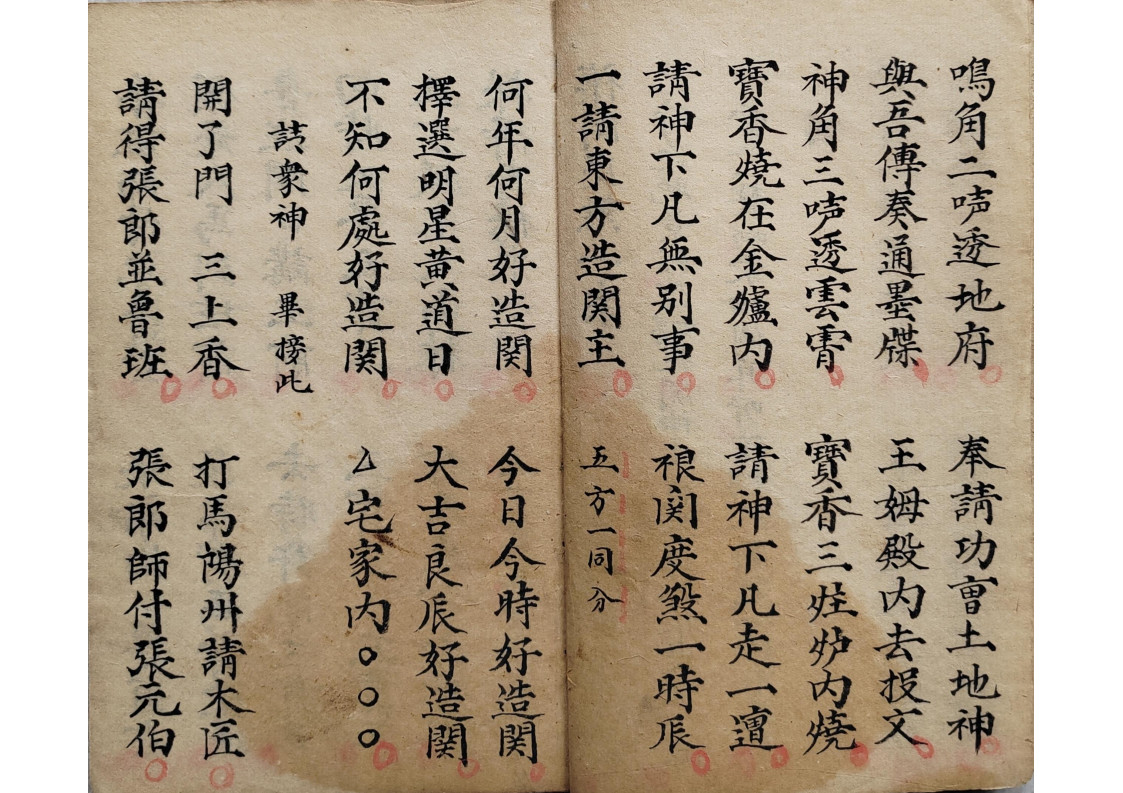 鳴角二声透地府　奉請功曺土地神
與吾傳奏通墨牒　王姆殿内去投文
神角三声透雲霄　寶香三炷炉内燒
寶香燒在金爐内　請神下凡走一壇
請神下凡無别事　関度煞一時辰
一請東方造関主　五方一同分
何年何月好造関　今日今時好造関
擇選明星黄道日　大吉良辰好造関
不知何處好造関　厶宅家内○○○
請衆神　畢接此
開了門　三上香　打馬州請木匠
請得張郎並魯班　張郎師付張元伯